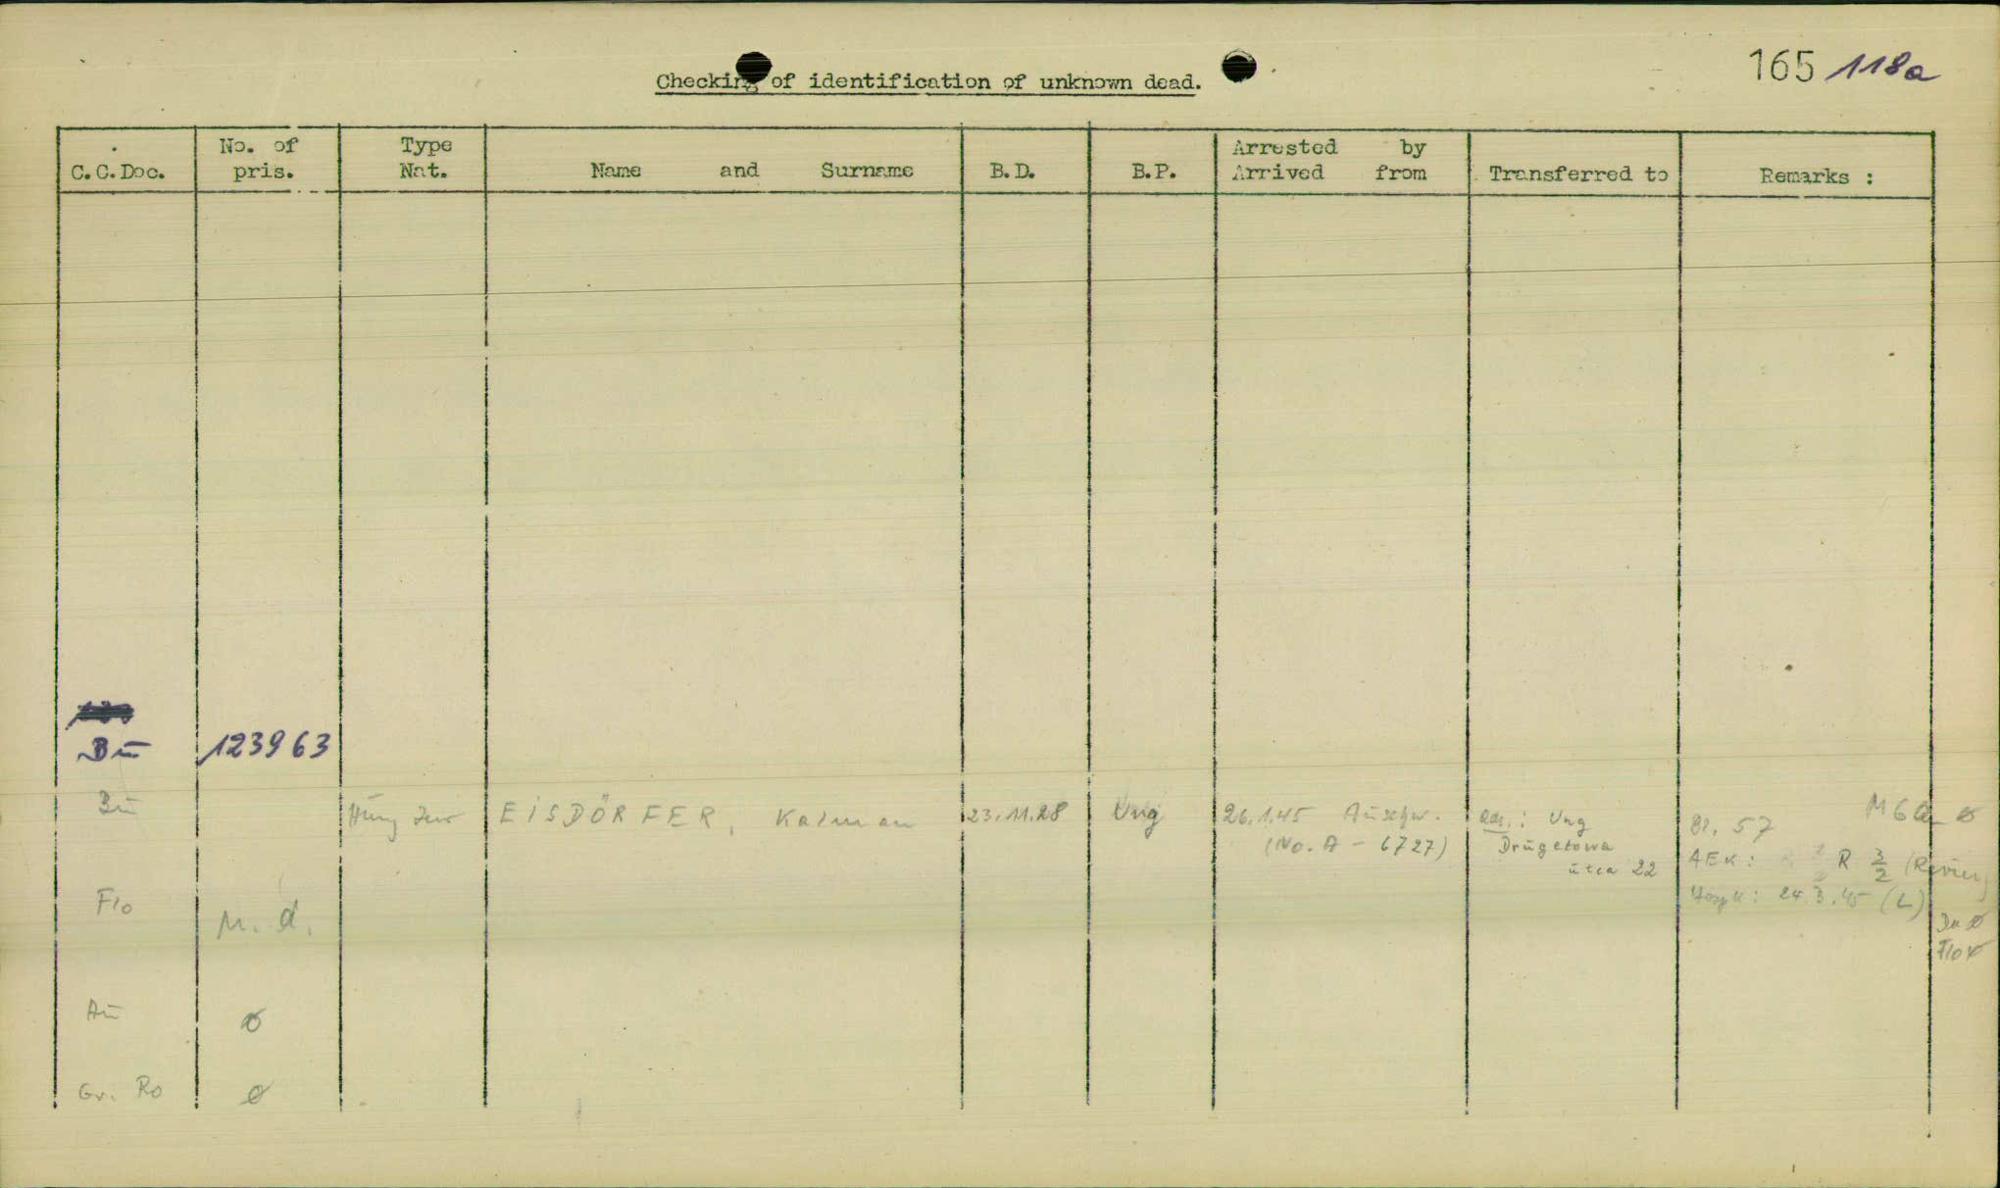 165 118a
Checking of identification of unknown dead.
C.C.Doc.
No. of pris.
Type Nat.
Name and Surname
B.D.
B.P.
Arrested by
Arrived from
Transferred to
Remarks :
Bū 123963
Bū Hung Jew EISDÖRFER, Kalman 23.11.28 Ung 26.1.45 Auschw. adr.: Ung Bl. 57
(No. A - 6727) Drugetowa AEK: R 3/2 (Revier)
utca 22
Hospk: 24.3.45 (L)
Flo n. d.
Da ø
Flo ø
Aū ø
Gr. Ro ø